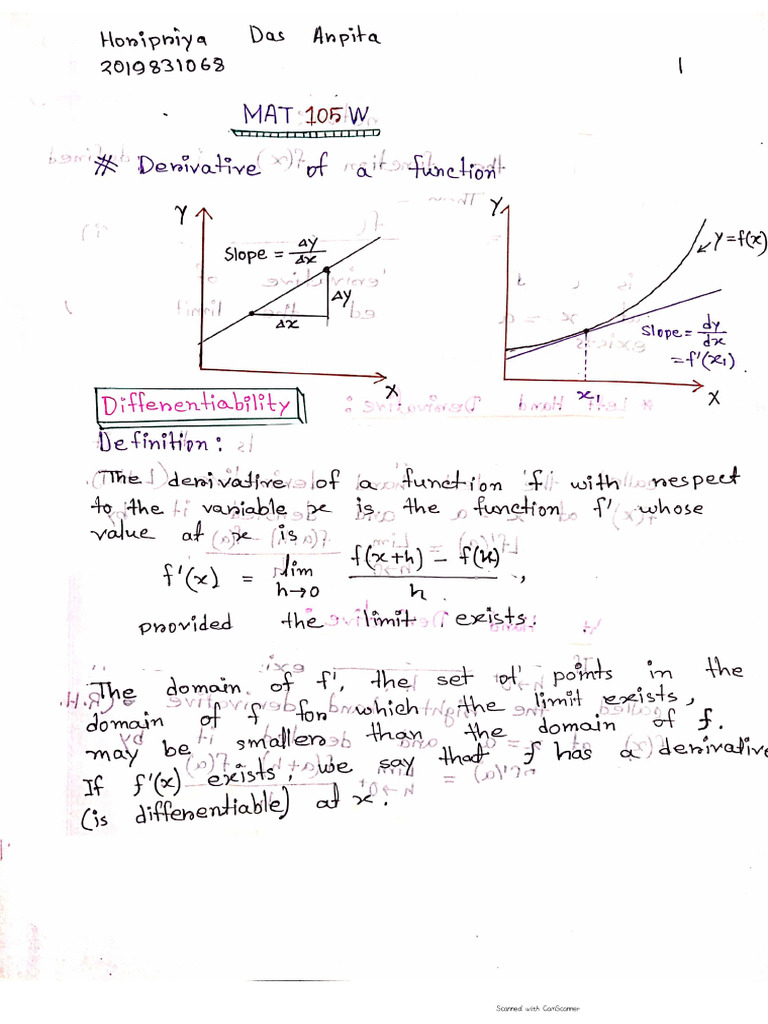 Honipniya Das Anpita
2019831068
1
MAT 105W
# Derivative of a function
Y
Slope = Δy/Δx
Δy
Δx
X
Y
y = f(x)
Slope = dy/dx
= f'(x₁).
x₁
X
Differentiability
Definition:
The derivative of a function f with respect
to the variable x is the function f' whose
value at x is
f'(x) = lim h→0 (f(x+h) - f(x))/h,
provided the limit exists.
The domain of f', the set of points in the
domain of f for which the limit exists,
may be smaller than the domain of f.
If f'(x) exists, we say that f has a derivative
(is differentiable) at x.
Scanned with CamScanner